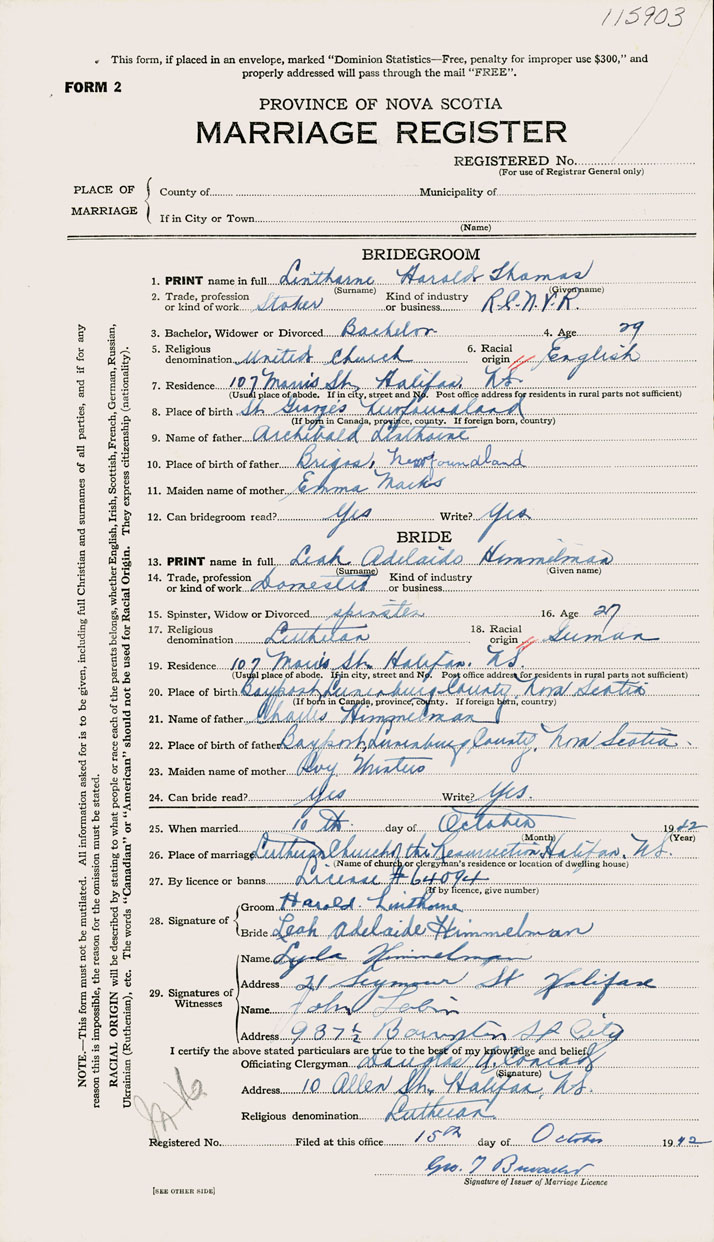 115903
This form, if placed in an envelope, marked "Dominion Statistics—Free, penalty for improper use $300," and
properly addressed will pass through the mail "FREE".
FORM 2
PROVINCE OF NOVA SCOTIA
MARRIAGE REGISTER
REGISTERED No.
(For use of Registrar General only)
PLACE OF MARRIAGE
County of Municipality of
If in City or Town
(Name)
BRIDEGROOM
1. PRINT name in full Linthorne Harold Thomas
(Surname) (Given name)
2. Trade, profession or kind of work Stoker Kind of industry or business R.C.N.V.R.
3. Bachelor, Widower or Divorced Bachelor 4. Age 29
5. Religious denomination United Church 6. Racial origin English
7. Residence 107 Morris St. Halifax, N.S.
(Usual place of abode. If in city, street and No. Post office address for residents in rural parts not sufficient)
8. Place of birth St. George's Newfoundland
(If born in Canada, province, county. If foreign born, country)
9. Name of father Archibald Linthorne
10. Place of birth of father Brigus, Newfoundland
11. Maiden name of mother Emma
12. Can bridegroom read? Yes Write? Yes
BRIDE
13. PRINT name in full Leah Adelaide Himmelman
(Surname) (Given name)
14. Trade, profession or kind of work Domestic Kind of industry or business
15. Spinster, Widow or Divorced spinster 16. Age 27
17. Religious denomination Lutheran 18. Racial origin German
19. Residence 107 Morris St. Halifax, N.S.
(Usual place of abode. If in city, street and No. Post office address for residents in rural parts not sufficient)
20. Place of birth Bayport, Lunenburg County, Nova Scotia
(If born in Canada, province, county. If foreign born, country)
21. Name of father Charles Himmelman
22. Place of birth of father Bayport, Lunenburg County, Nova Scotia.
23. Maiden name of mother Winters
24. Can bride read? Yes Write? Yes.
25. When married 10th day of October 1942
(Month) (Year)
26. Place of marriage Lutheran Church of the Resurrection Halifax, N.S.
(Name of church or clergyman's residence or location of dwelling house)
27. By licence or banns License #64094
(If by licence, give number)
28. Signature of
Groom Harold Linthorne
Bride Leah Adelaide Himmelman
29. Signatures of Witnesses
Name Lyda Himmelman
Address 21 Seymour St Halifax
Name John Tobin
Address 937½ Barrington St City
I certify the above stated particulars are true to the best of my knowledge and belief,
Officiating Clergyman Douglas A. Conrad
(Signature)
Address 10 Allen St., Halifax, N.S.
Religious denomination Lutheran
Registered No. Filed at this office 15th day of October 1942
Geo. T
Signature of Issuer of Marriage Licence
[SEE OTHER SIDE]
NOTE.—This form must not be mutilated. All information asked for is to be given, including full Christian and surnames of all parties, and if for any
reason this is impossible, the reason for the omission must be stated.
RACIAL ORIGIN will be described by stating to what people or race each of the parents belongs, whether English, Irish, Scottish, French, German, Russian,
Ukrainian (Ruthenian), etc. The words "Canadian" or "American" should not be used for Racial Origin. They express citizenship (nationality).